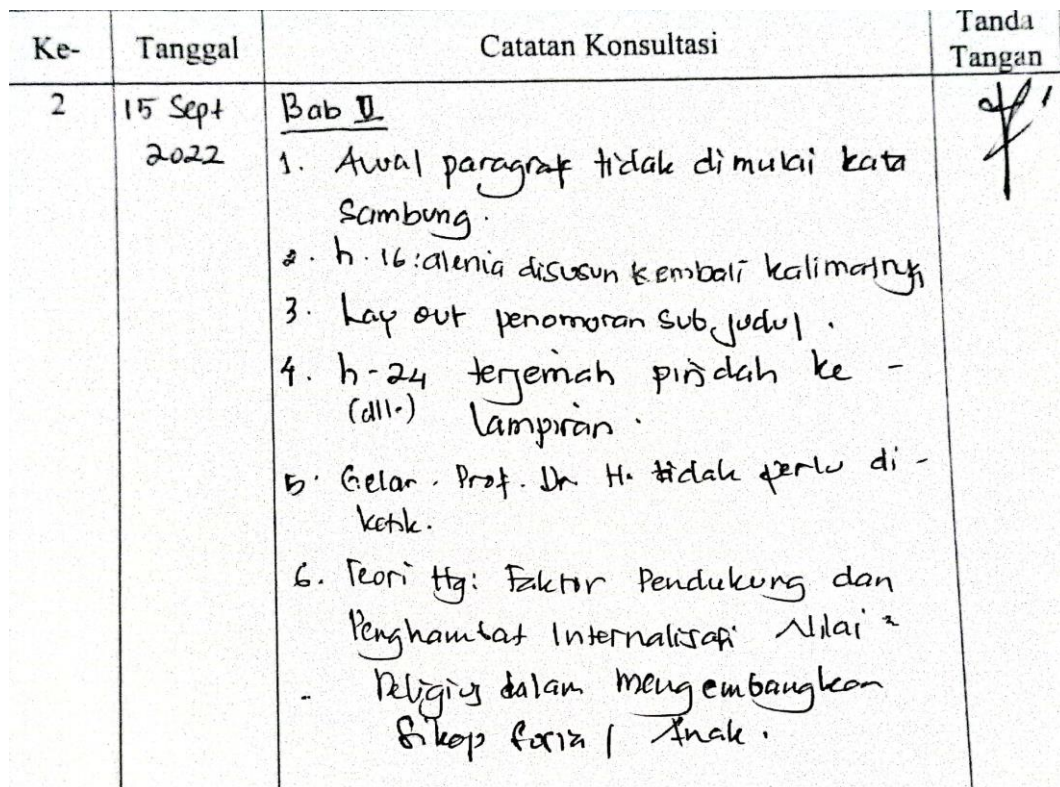 Ke- Tanggal Catatan Konsultasi Tanda Tangan
2 15 Sept 2022
Bab II
1. Awal paragraf tidak dimulai kata
Sambung.
2. h. 16: alenia disusun kembali kalimatnya
3. Lay out penomoran sub judul.
4. h-24 terjemah pindah ke -
(dll.) lampiran.
5. Gelar. Prof. Dr. H. tidak perlu di -
ketik.
6. Teori ttg: Faktor Pendukung dan
Penghambat Internalisasi Nilai²
- Religius dalam mengembangkan
Sikap Sosial Anak.